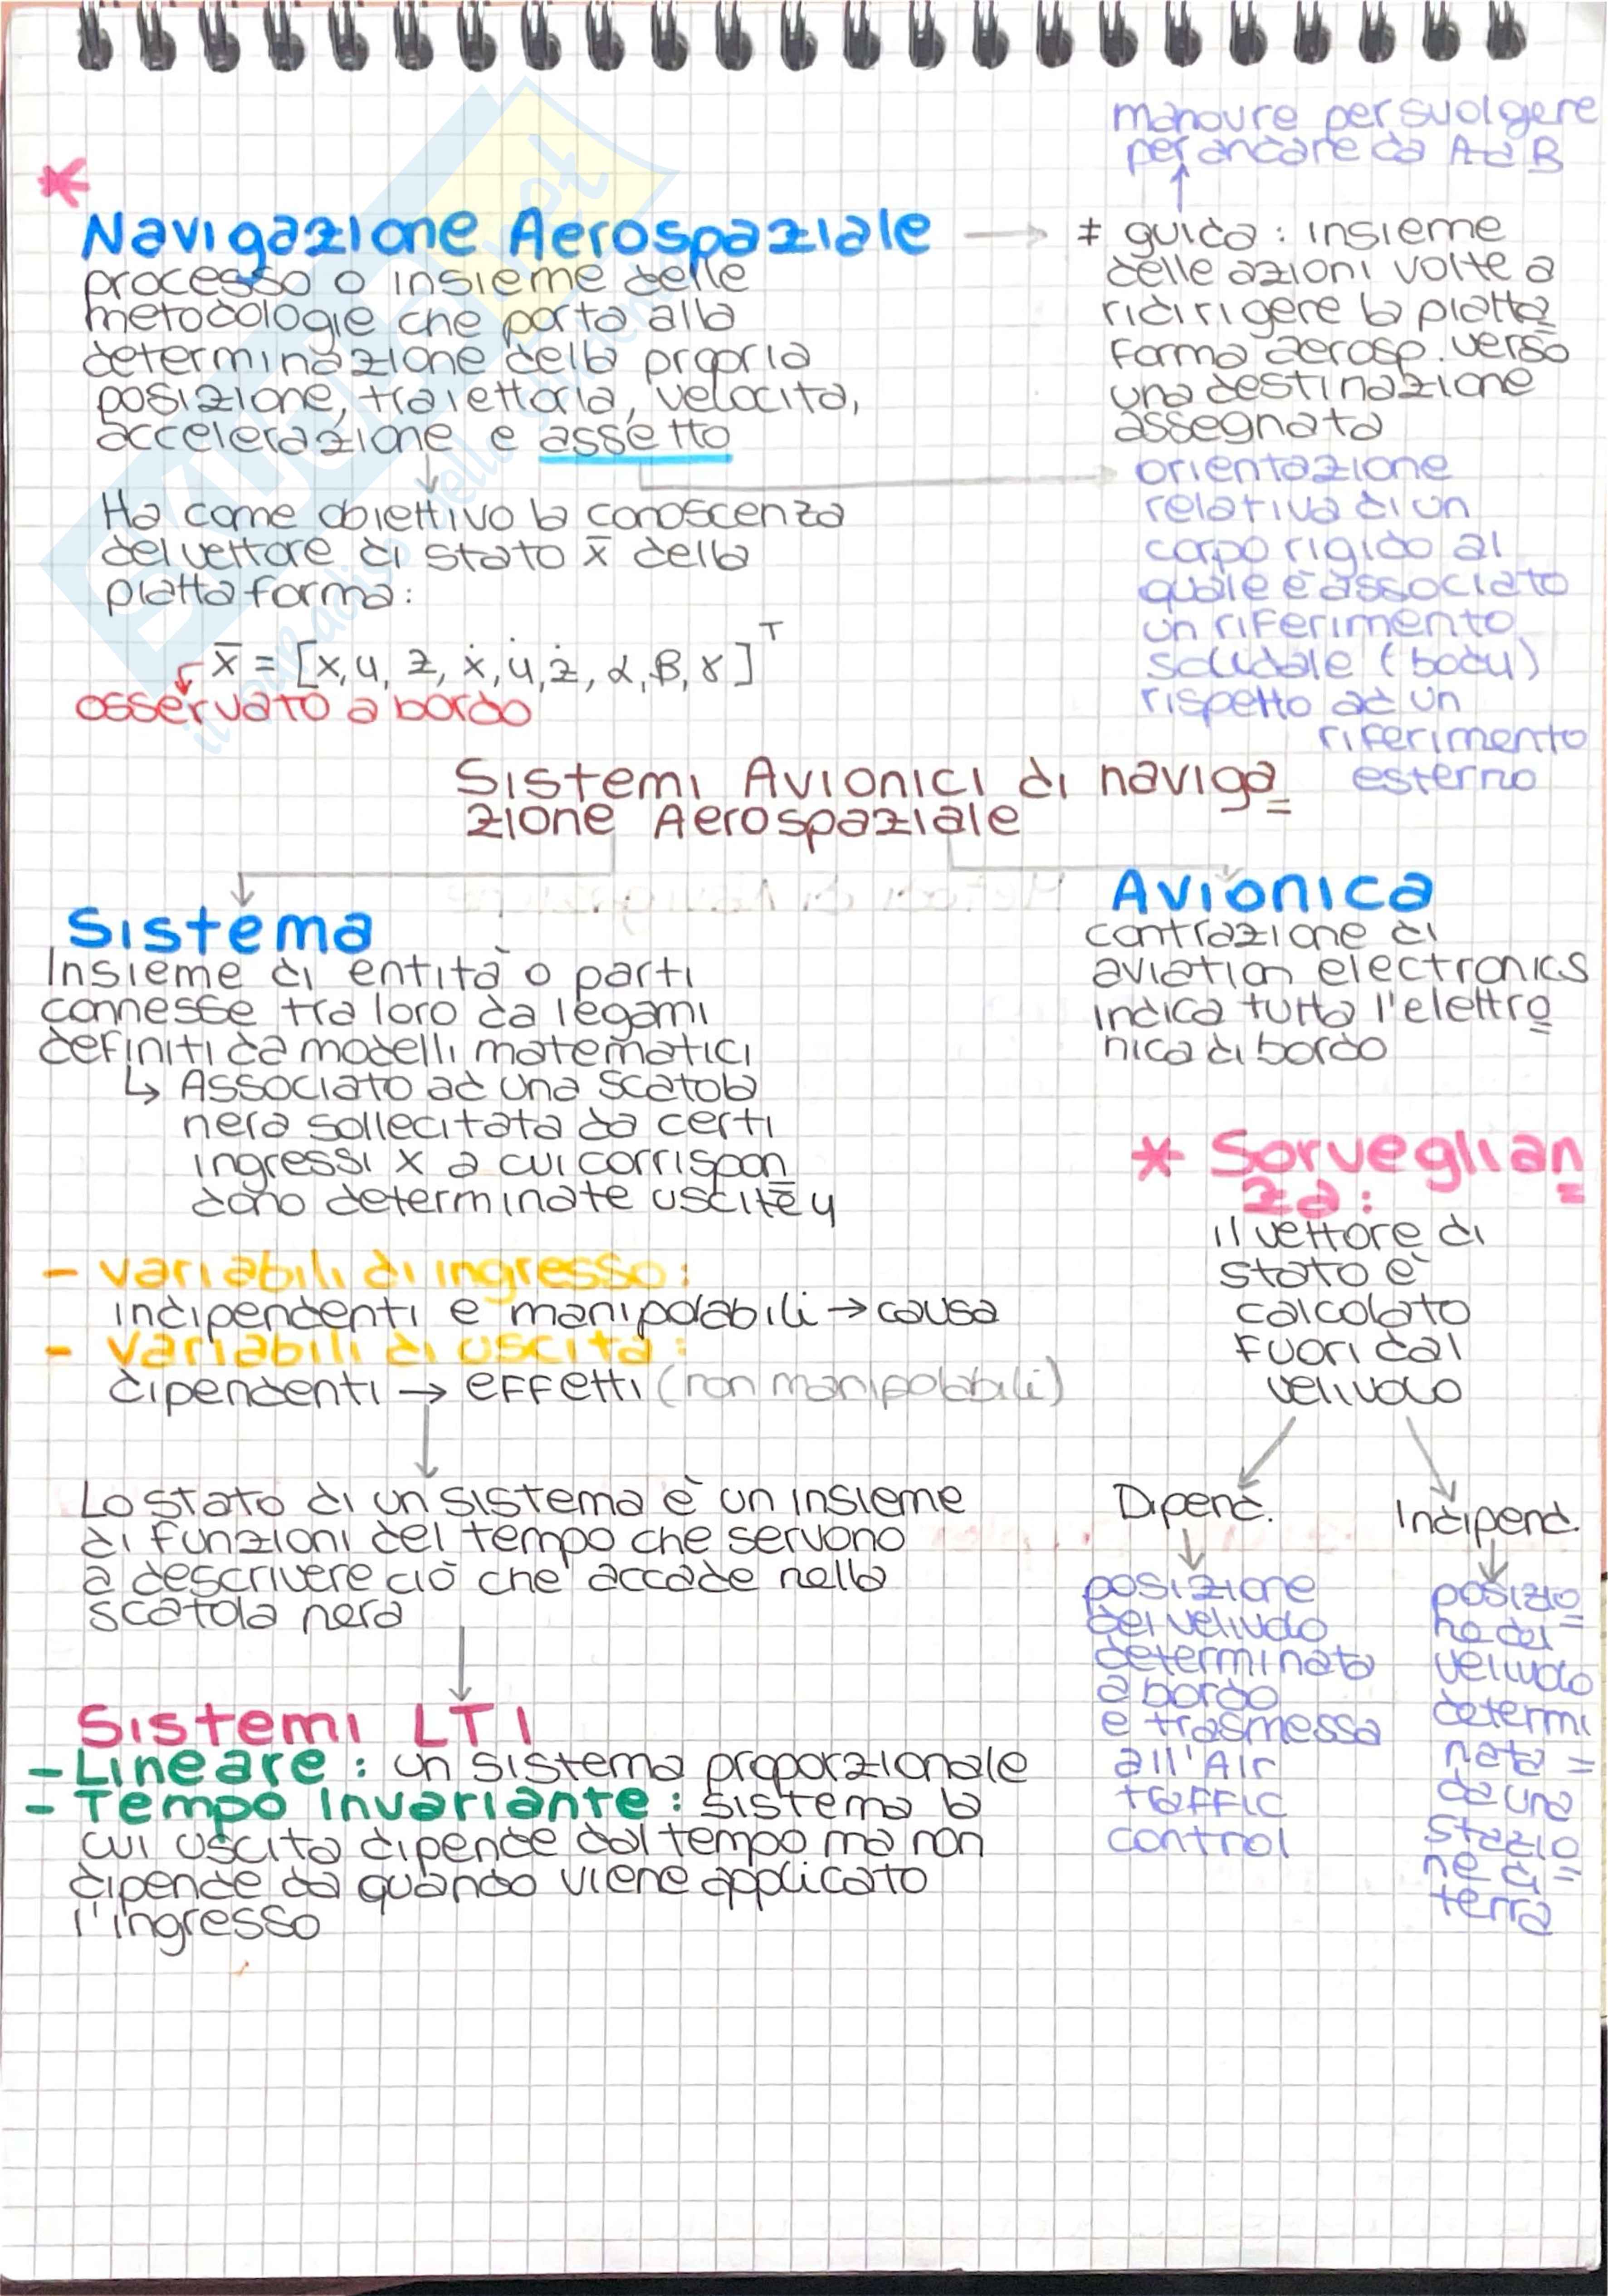 manovre per svolgere
per andare da A a B
*
Navigazione Aerospaziale → ≠ guida: insieme
delle azioni volte a
ridirigere la piatta
forma aerosp. verso
una destinazione
assegnata
processo o insieme delle
metodologie che porta alla
determinazione della propria
posizione, traiettoria, velocità,
accelerazione e assetto
orientazione
relativa di un
corpo rigido al
quale è associato
un riferimento
solidale (body)
rispetto ad un
riferimento
esterno
Ha come obiettivo la conoscenza
del vettore di stato x̄ della
piattaforma:
x̄ = [x, y, z, ẋ, ẏ, ż, α, β, γ]ᵀ
osservato a bordo
Sistemi Avionici di naviga
zione Aerospaziale
Sistema
Insieme di entità o parti
connesse tra loro da legami
definiti da modelli matematici
↳ Associato ad una scatola
nera sollecitata da certi
ingressi x a cui corrispon
dono determinate uscite y
Avionica
contrazione di
aviation electronics
indica tutta l'elettro
nica di bordo
- variabili di ingresso:
indipendenti e manipolabili → causa
- variabili di uscita:
dipendenti → effetti (non manipolabili)
Lo stato di un sistema è un insieme
di funzioni del tempo che servono
a descrivere ciò che accade nella
scatola nera
* Sorveglian
za:
il vettore di
stato è
calcolato
fuori dal
velivolo
Dipend.
posizione
del velivolo
determinata
a bordo
e trasmessa
all'Air
traffic
control
Indipend.
posizio
ne del
velivolo
determi
nata
da una
stazio
ne di
terra
Sistemi LTI
- Lineare: un sistema proporzionale
- Tempo Invariante: sistema la
cui uscita dipende dal tempo ma non
dipende da quando viene applicato
l'ingresso